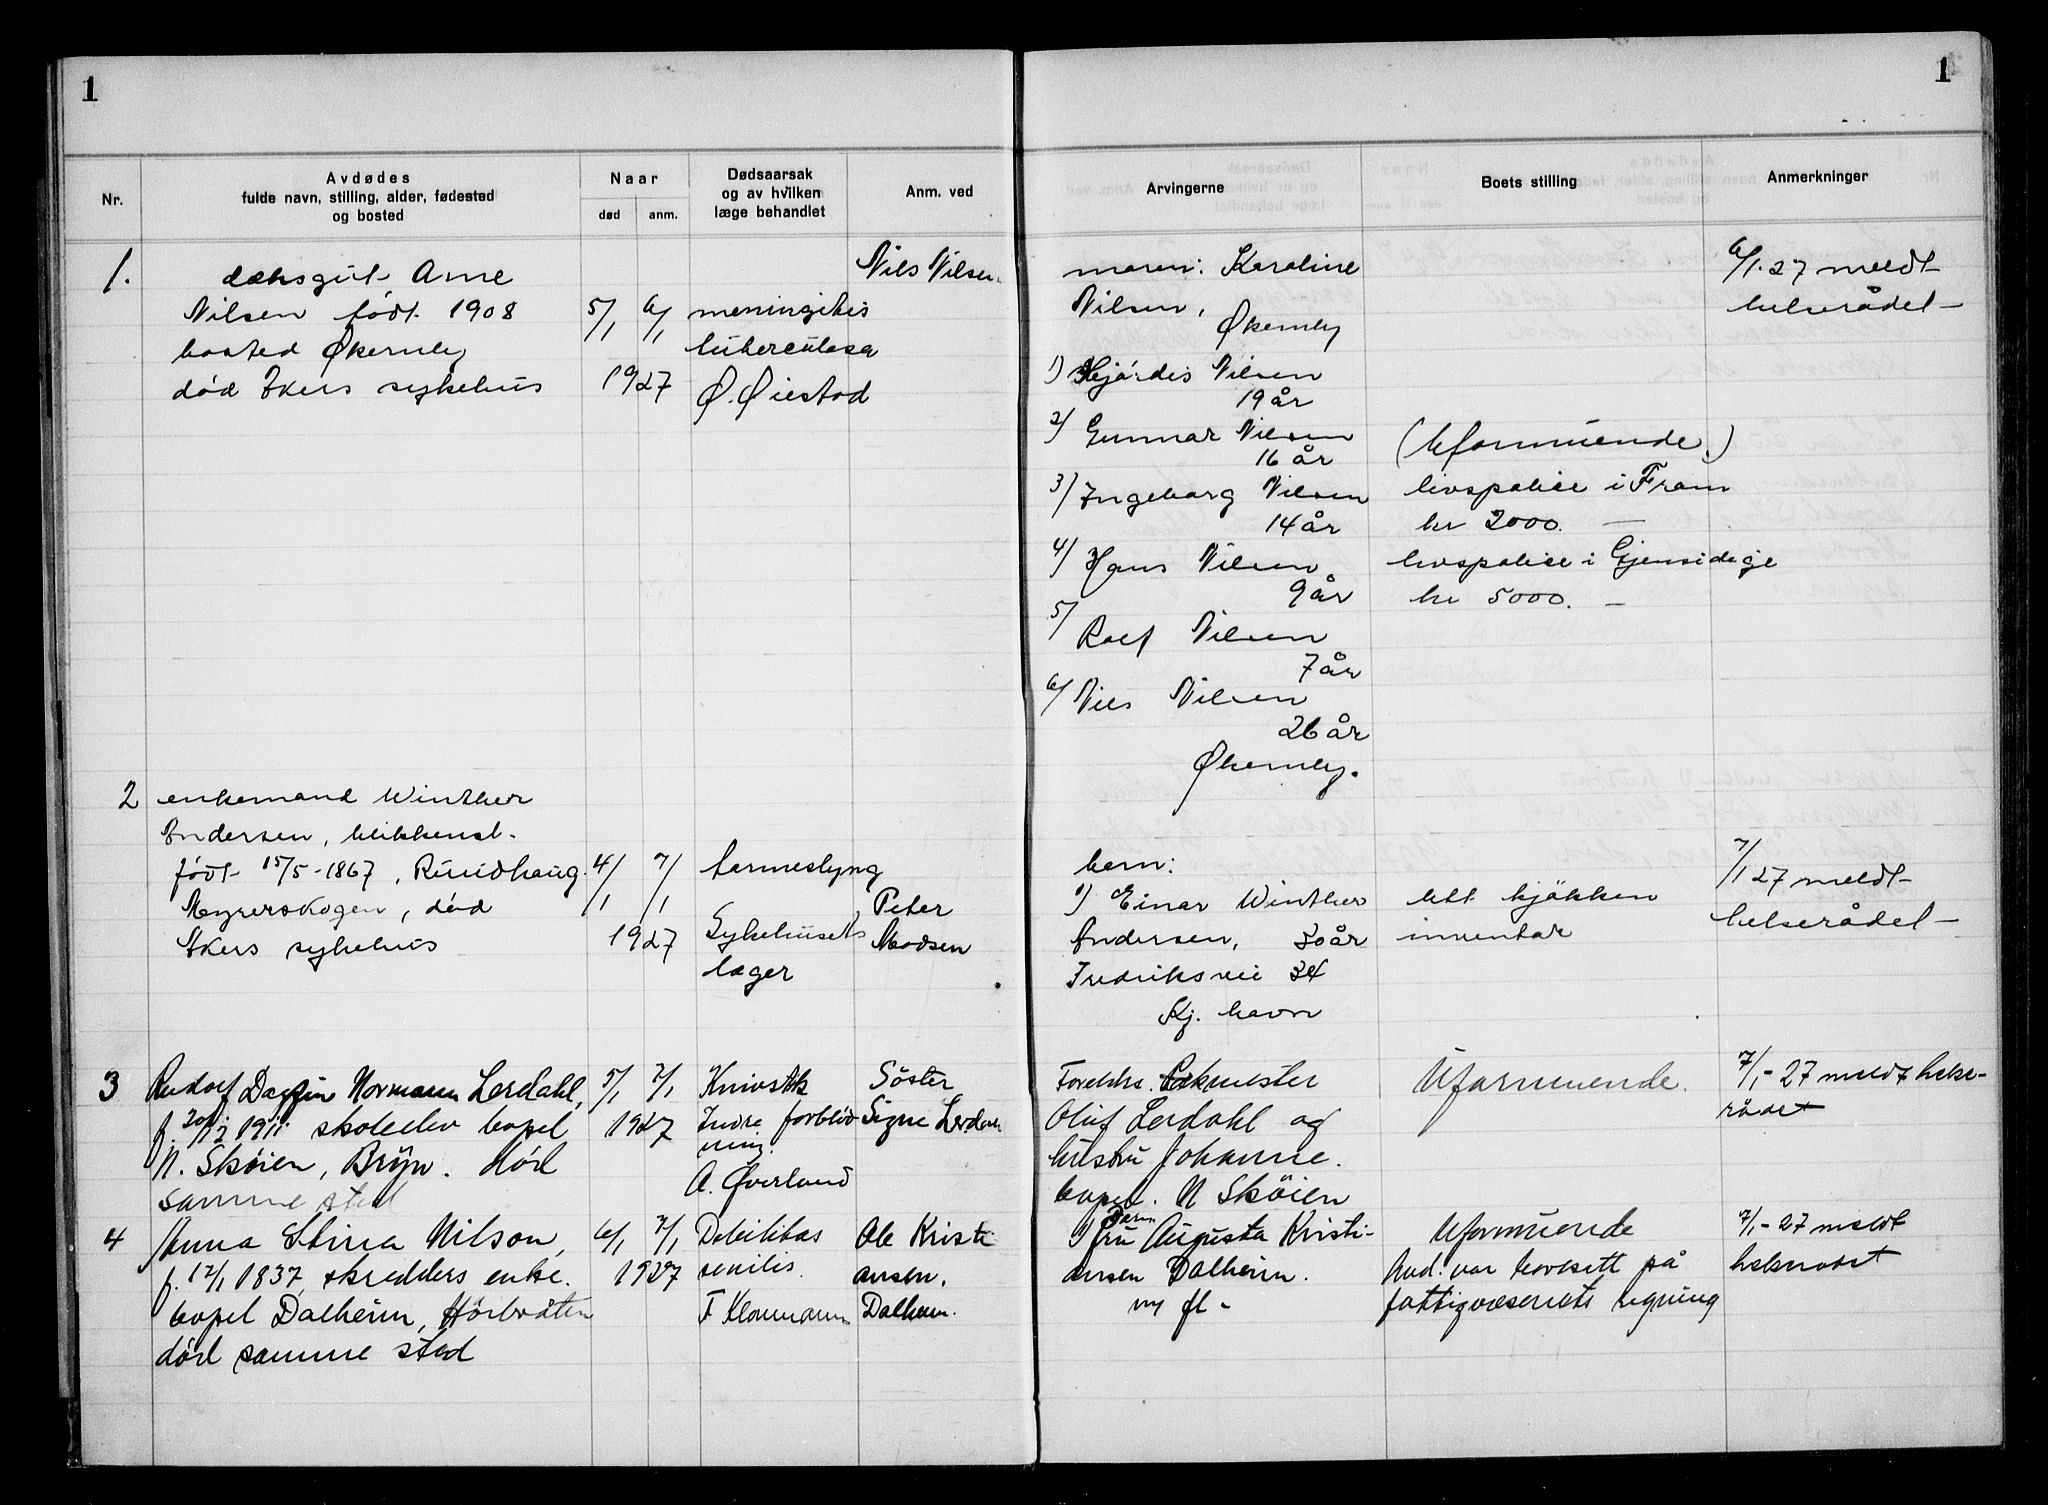 1
Nr.
Avdødes
fulde navn, stilling, alder, fødested
og bosted
Naar
død
anm.
Dødsaarsak
og av hvilken
læge behandlet
Anm. ved
1.
dæksgut Arne
Nilsen født 1908
bosted Økernby
død Akers sykehus
5/1
6/1
1927
meningitis
tuberculosa
Ø. Øiestad
Nils Nilsen
2
enkemand Winther
Andersen, blikkensl.
født 15/5-1867, Ruudhaug
Meyerskogen, död
Akers sykehus
4/1
7/1
1927
tarmeslyng
Sykehusets
læger
Peter
Madsen
3
Rudolf Dagfin Normann Lerdahl,
f. 1911 skoleelev bopel
N. Skøien, Bryn. död
samme sted
5/1
7/1
1927
Knivstikk
Indre forblöd-
ning.
A. Øverland
Söster
Signe Lerdahl
4
Anna Stina Nilson,
f. 12/1 1837, skredders enke.
bopel Dalheim, Hörbråten
död samme sted
6/1
7/1
1927
Debilitas
senilis.
F
Ole Kristi
ansen,
Dalheim.
1
Arvingerne
Boets stilling
Anmerkninger
moren: Karoline
Nilsen,
Økernby
1) Hjördis Nilsen
19 år
2) Gunnar Nilsen
16 år
3) Ingeborg Nilsen
14 år
4) Hans Nilsen
9 år
5)
Rolf Nilsen
7 år
6) Nils Nilsen
26 år
Økernby.
(Uformuende)
livspolise i Fram
kr 2000. —
livspolise i Gjensidige
kr 5000. —
6/1-27 meldt
helserådet
barn:
1) Einar Winther
Andersen, 30 år
Fredriksvei 34
Kj. havn
litt kjökken
inventar
7/1 27 meldt
helserådet
Foreldre.
Oluf Lerdahl og
hustru Johanne.
bopel. N Skøien
Uformuende.
7/1-27 meldt helse-
rådet
Barn
1 fru Augusta Kristi-
ansen Dalheim.
m fl.
Uformuende
And. var bortsett på
fattigvesenets regning
7/1-27 meldt
helserådet